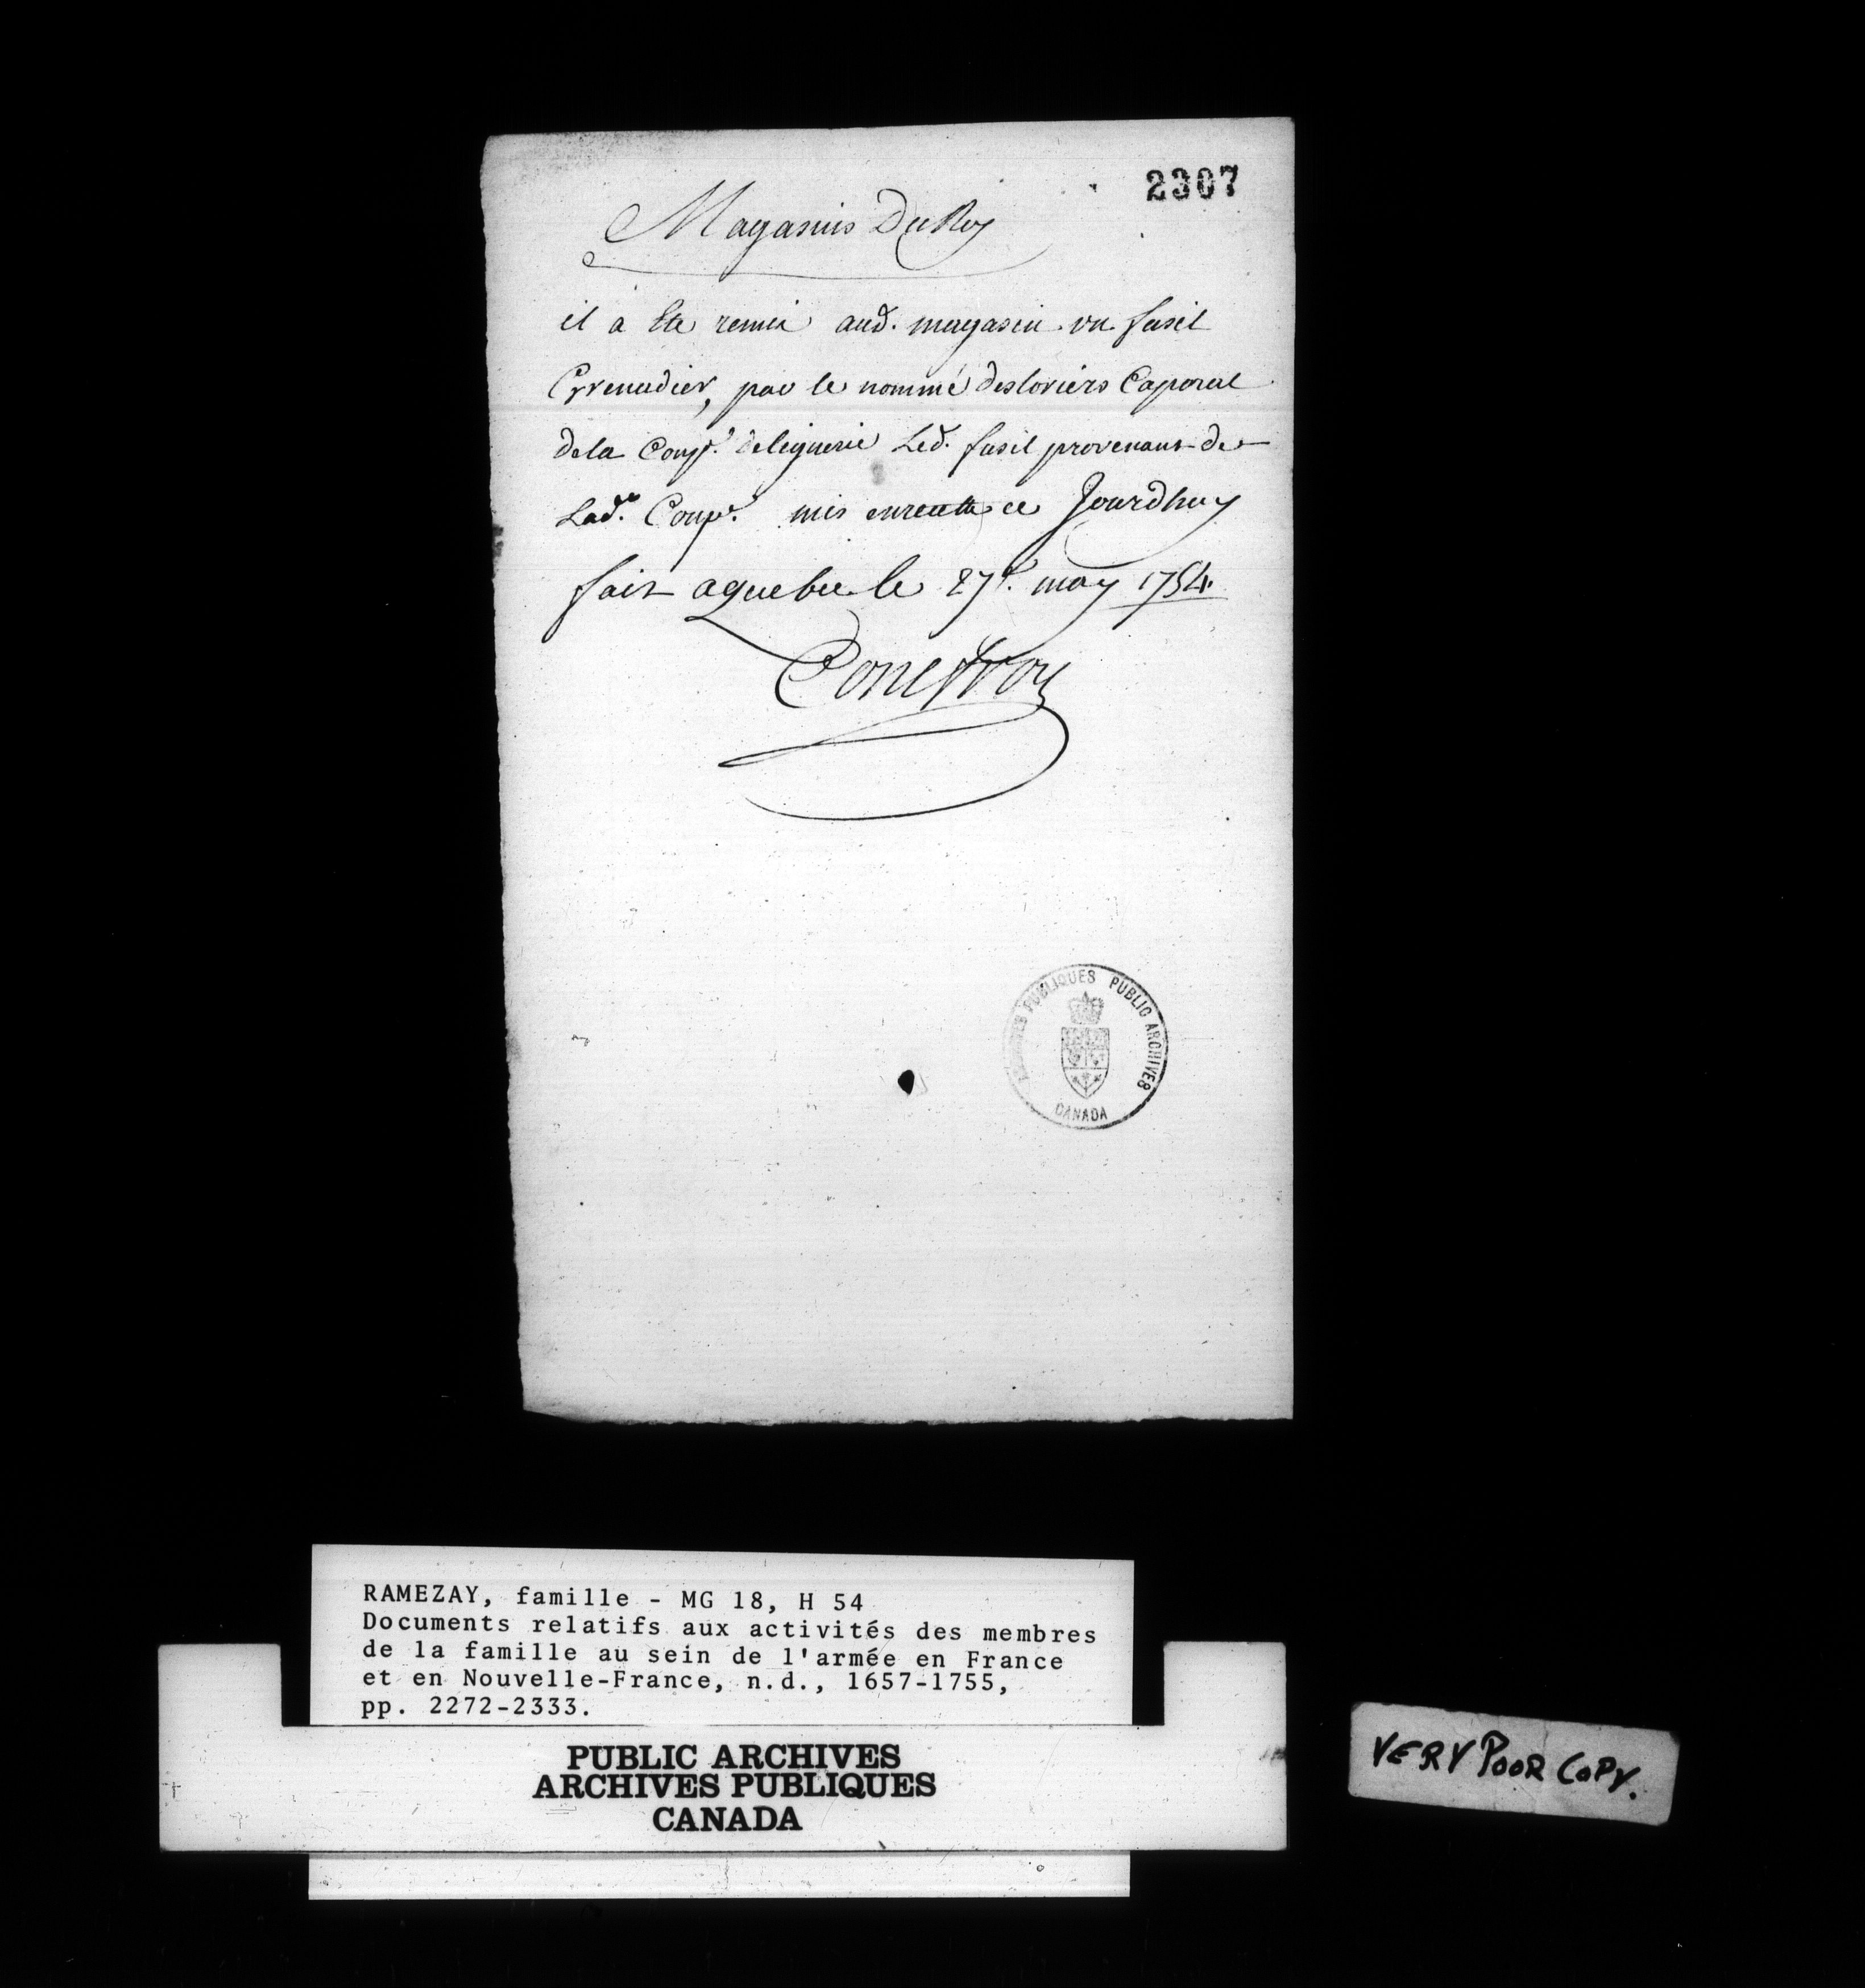 2307
Magasins Du Roy
il a Ete remis aud. magasin un fusil
Grenadier, par le nommé desloriers Caporal
de la Compe. deligneris Led. fusil provenant de
Lade. Compe. mis en recette ce Jourdhuy
fait a quebec le 27e. may 1754.
ARCHIVES PUBLIQUES PUBLIC ARCHIVES
CANADA
RAMEZAY, famille - MG 18, H 54
Documents relatifs aux activités des membres
de la famille au sein de l'armée en France
et en Nouvelle-France, n.d., 1657-1755,
pp. 2272-2333.
PUBLIC ARCHIVES
ARCHIVES PUBLIQUES
CANADA
VERY POOR COPY.